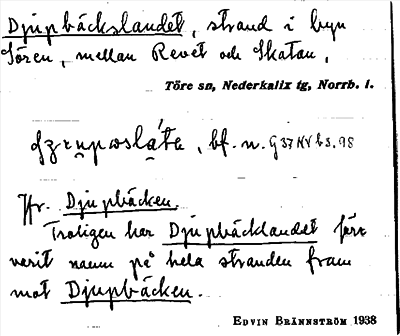 Djupbäckslandet, strand i byn
Sören, mellan Revet och Skatan.
Töre sn, Nederkalix tg, Norrb. l.
bf. n.
Jfr. Djupbäcken.
Troligen har Djupbäckslandet förr
varit namn på hela stranden fram
mot Djupbäcken.
EDVIN BRÄNNSTRÖM 1938